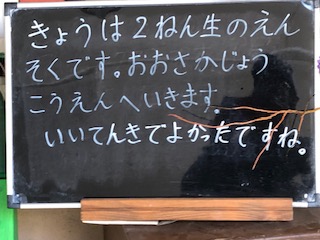 きょうは2ねん生のえん
そくです。おおさかじょう
こうえんへいきます。
いいてんきでよかったですね。